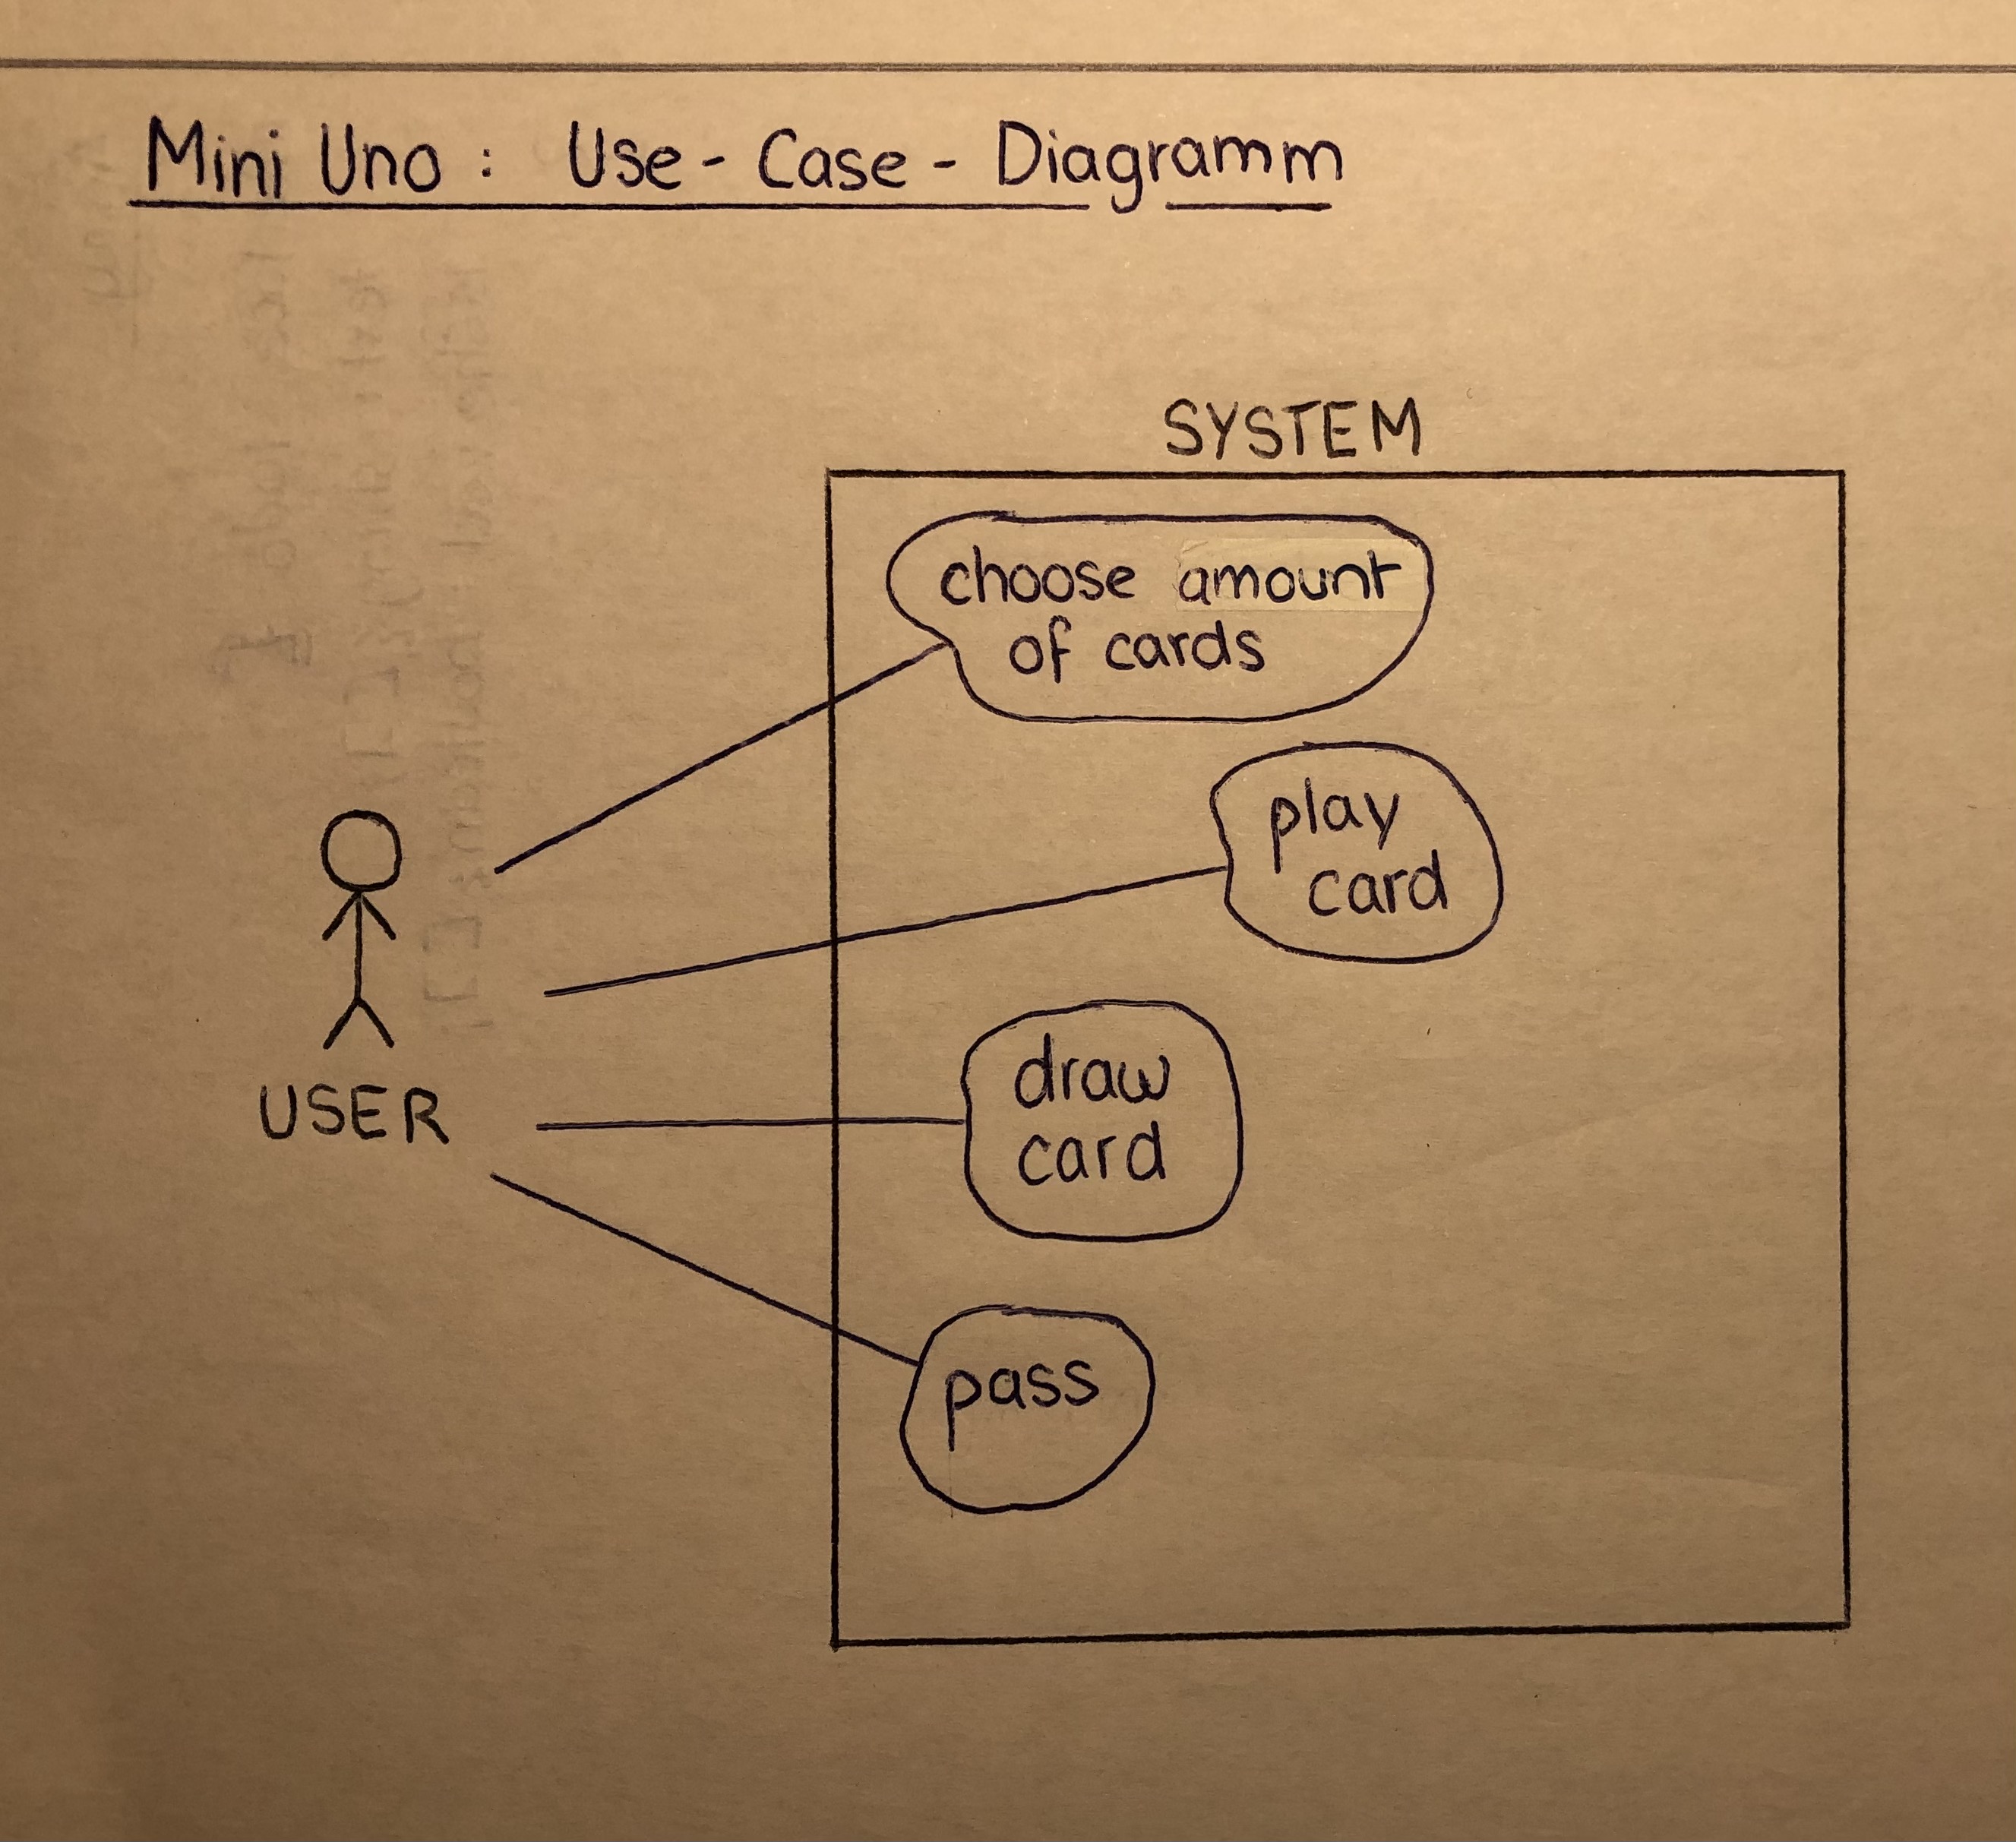 Mini Uno : Use - Case - Diagramm
SYSTEM
choose amount
of cards
play
card
draw
card
pass
USER